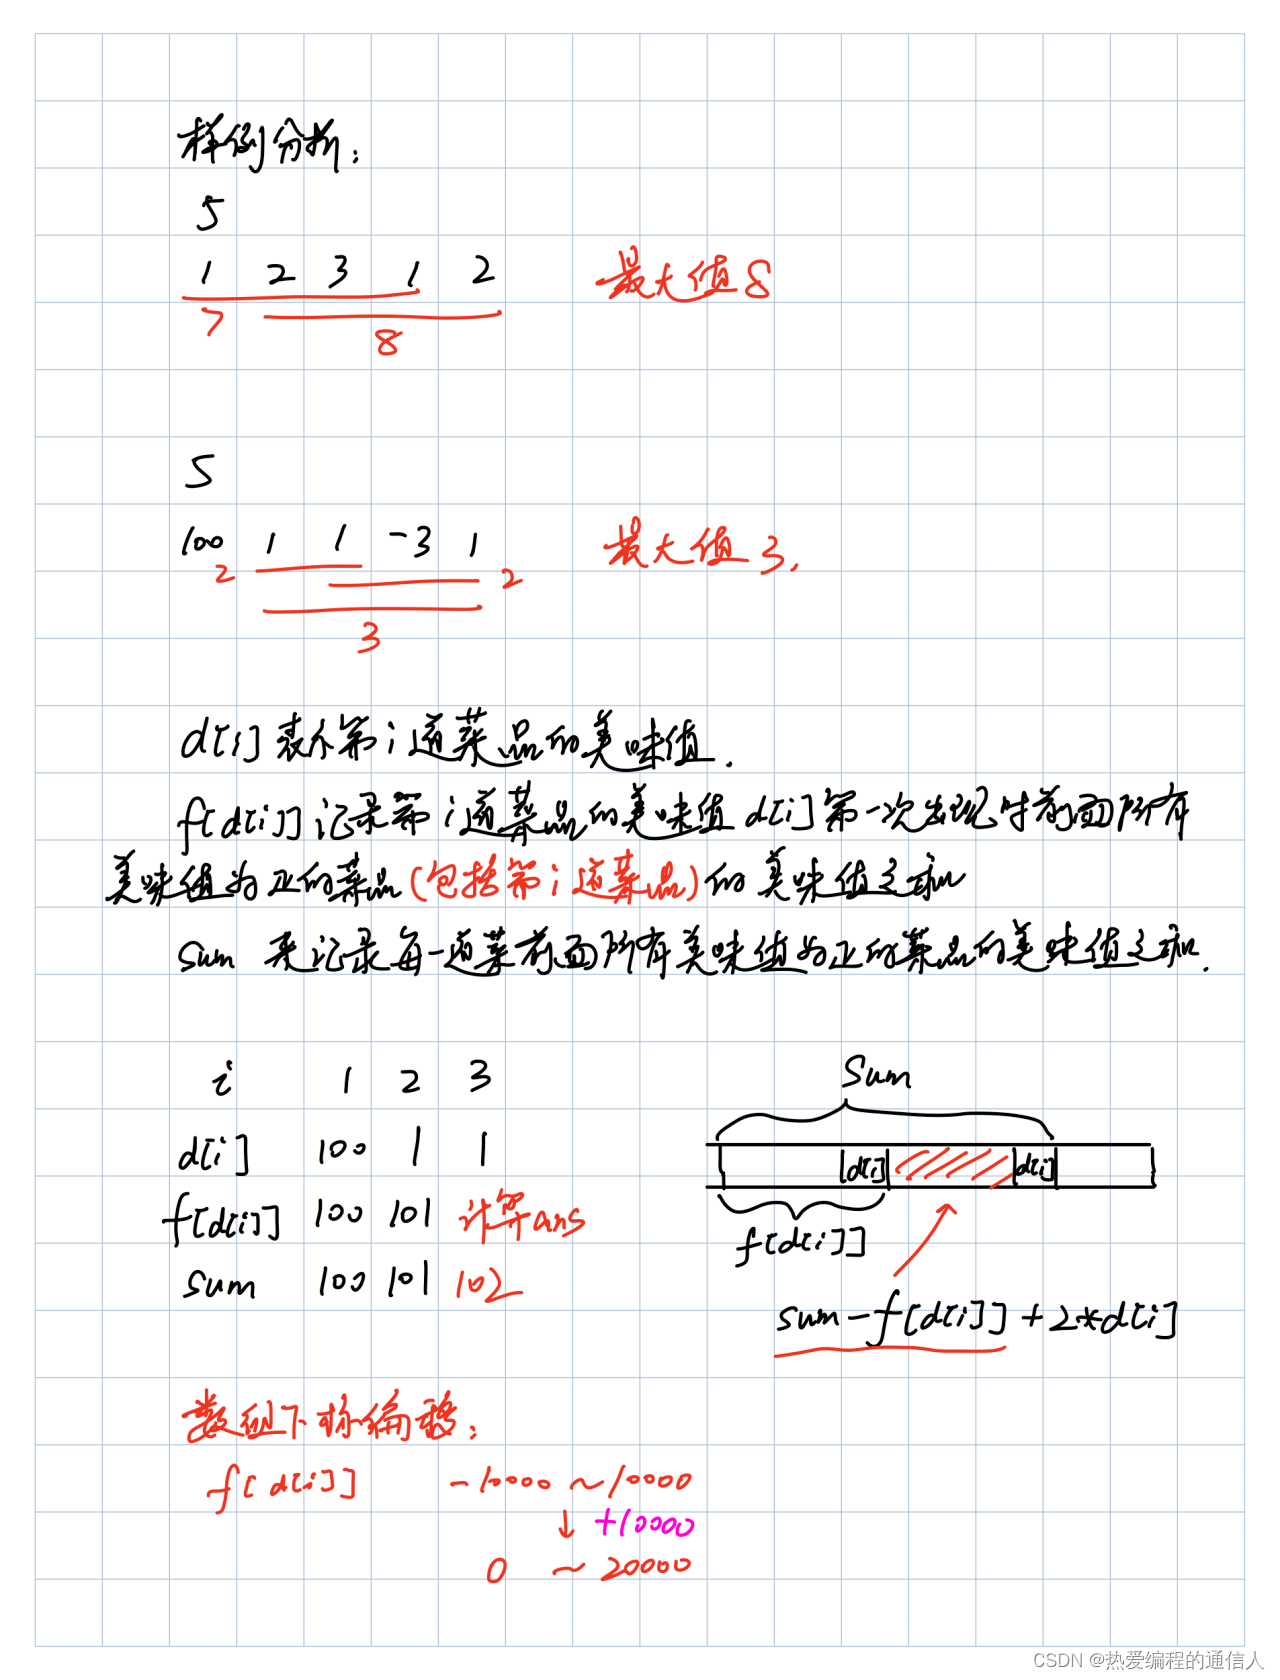 样例分析：
5
1 2 3 1 2 最大值8
7
8
5
100 1 1 -3 1 最大值3.
2 2
3
d[i]表示第i道菜品的美味值.
f[d[i]]记录第i道菜品的美味值d[i]第一次出现时前面所有
美味值为正的菜品(包括第i道菜品)的美味值之和
sum 来记录每一道菜前面所有美味值为正的菜品的美味值之和.
i 1 2 3
d[i] 100 1 1
f[d[i]] 100 101 计算ans
sum 100 101 102
sum
d[i] d[i]
f[d[i]]
sum-f[d[i]]+2*d[i]
数组下标偏移：
f[d[i]] -10000 ~ 10000
↓ +10000
0 ~ 20000
CSDN @热爱编程的通信人